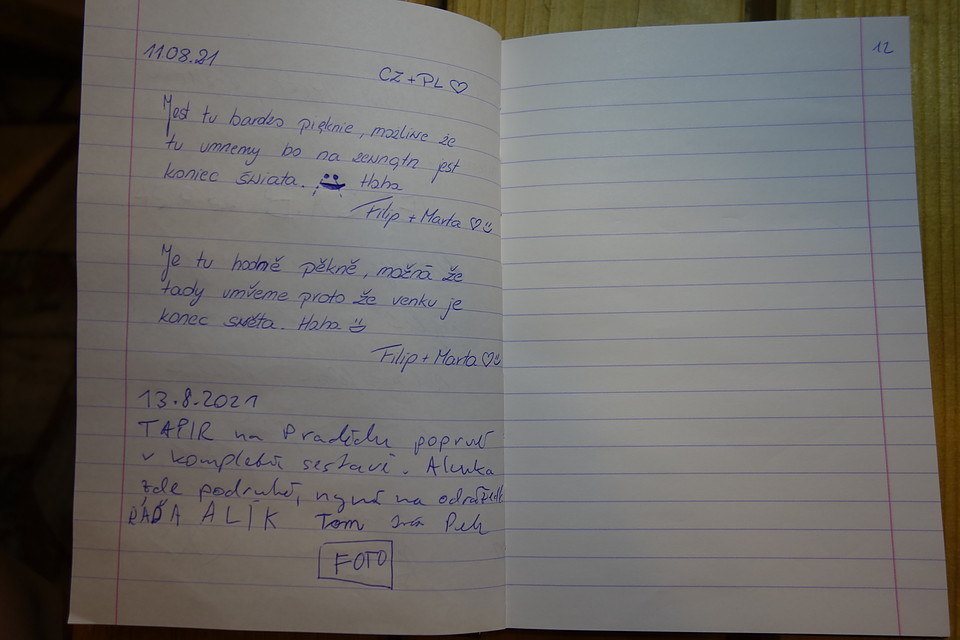 11 08.21
CZ + PL ♡
Jest tu bardzo pięknie, możliwe że
tu umrnemy bo na zewnątrz jest
koniec świata. Haha
Filip + Marta ♡
Je tu hodně pěkně, možná že
tady umřeme proto že venku je
konec světa. Haha
Filip + Marta ♡
13.8.2021
TAPIR na Pradědu poprvé
v kompletní sestavě. Alenka
zde podruhé, nyní na odrážedle
RÁĎA ALÍK Tom
FOTO
12